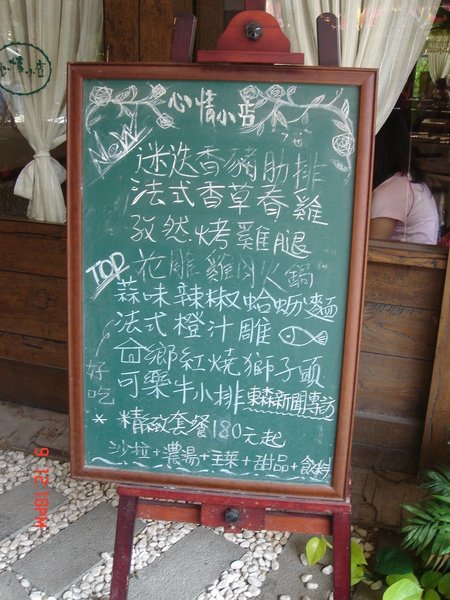 心情小店
心情小店
New
迷迭香豬肋排
法式香草春雞
孜然烤雞腿
TOP
花雕雞肉火鍋
蒜味辣椒蛤蚋麵
法式橙汁雕
古鄉紅燒獅子頭
好吃
可樂牛小排 東森新聞專訪
* 精緻套餐180元起
沙拉+濃湯+主菜+甜品+飲料
9 12:11PM